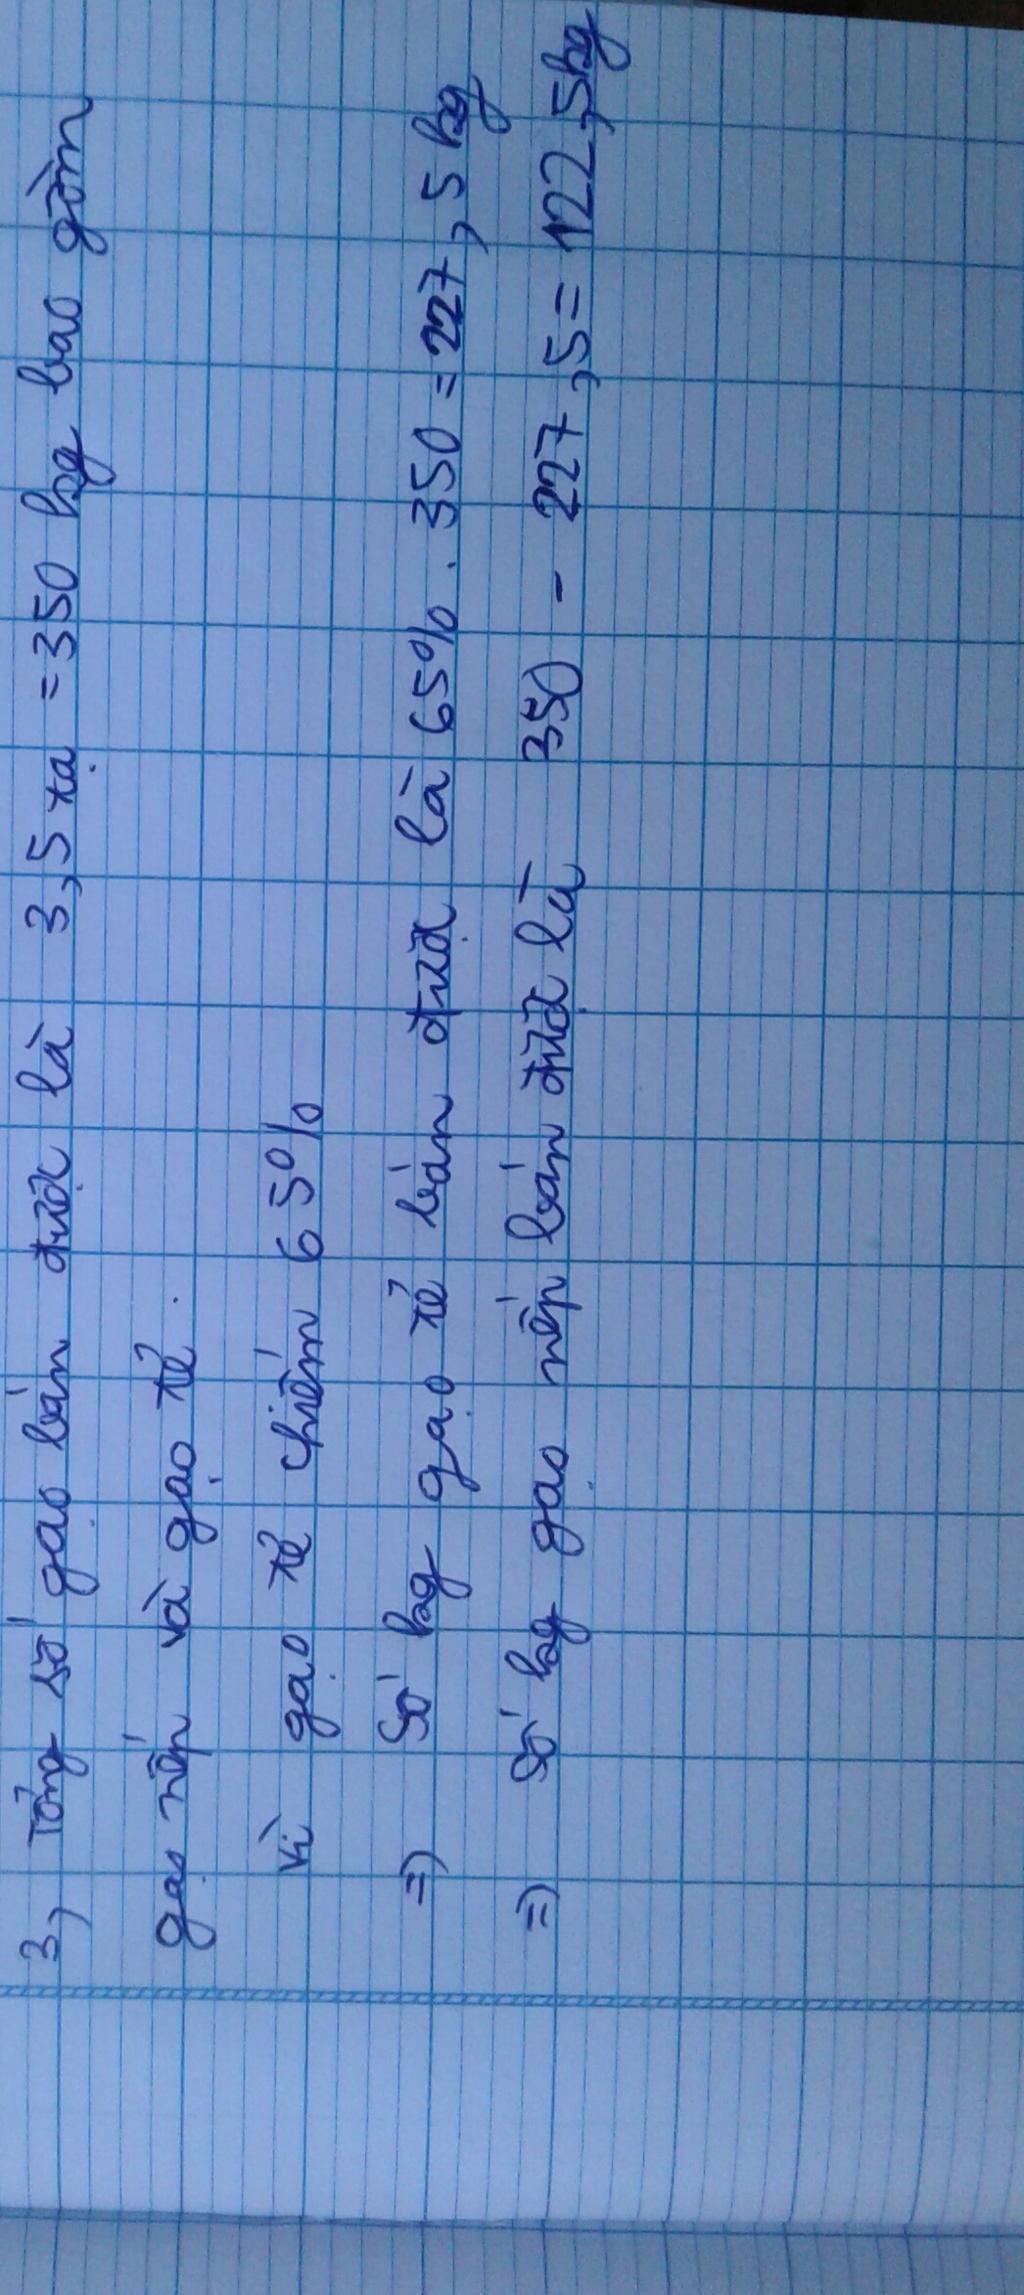 3, Tổng số gạo bán được là 3,5 tạ = 350 kg bao gồm
gạo nếp và gạo tẻ.
Vì gạo tẻ chiếm 65%
=) Số kg gạo tẻ bán được là 65% . 350 = 227,5 kg
=) Số kg gạo nếp bán được là 350 - 227,5 = 122,5kg